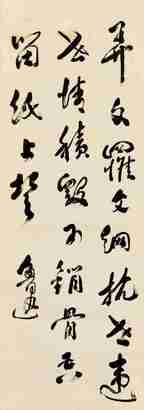 弄文罹文網抗世違
世情積毀可銷骨空
留紙上聲
魯迅